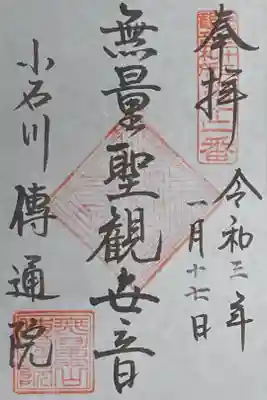 奉拝
令和三年
一月十七日
無量聖観世音
小石川傳通院